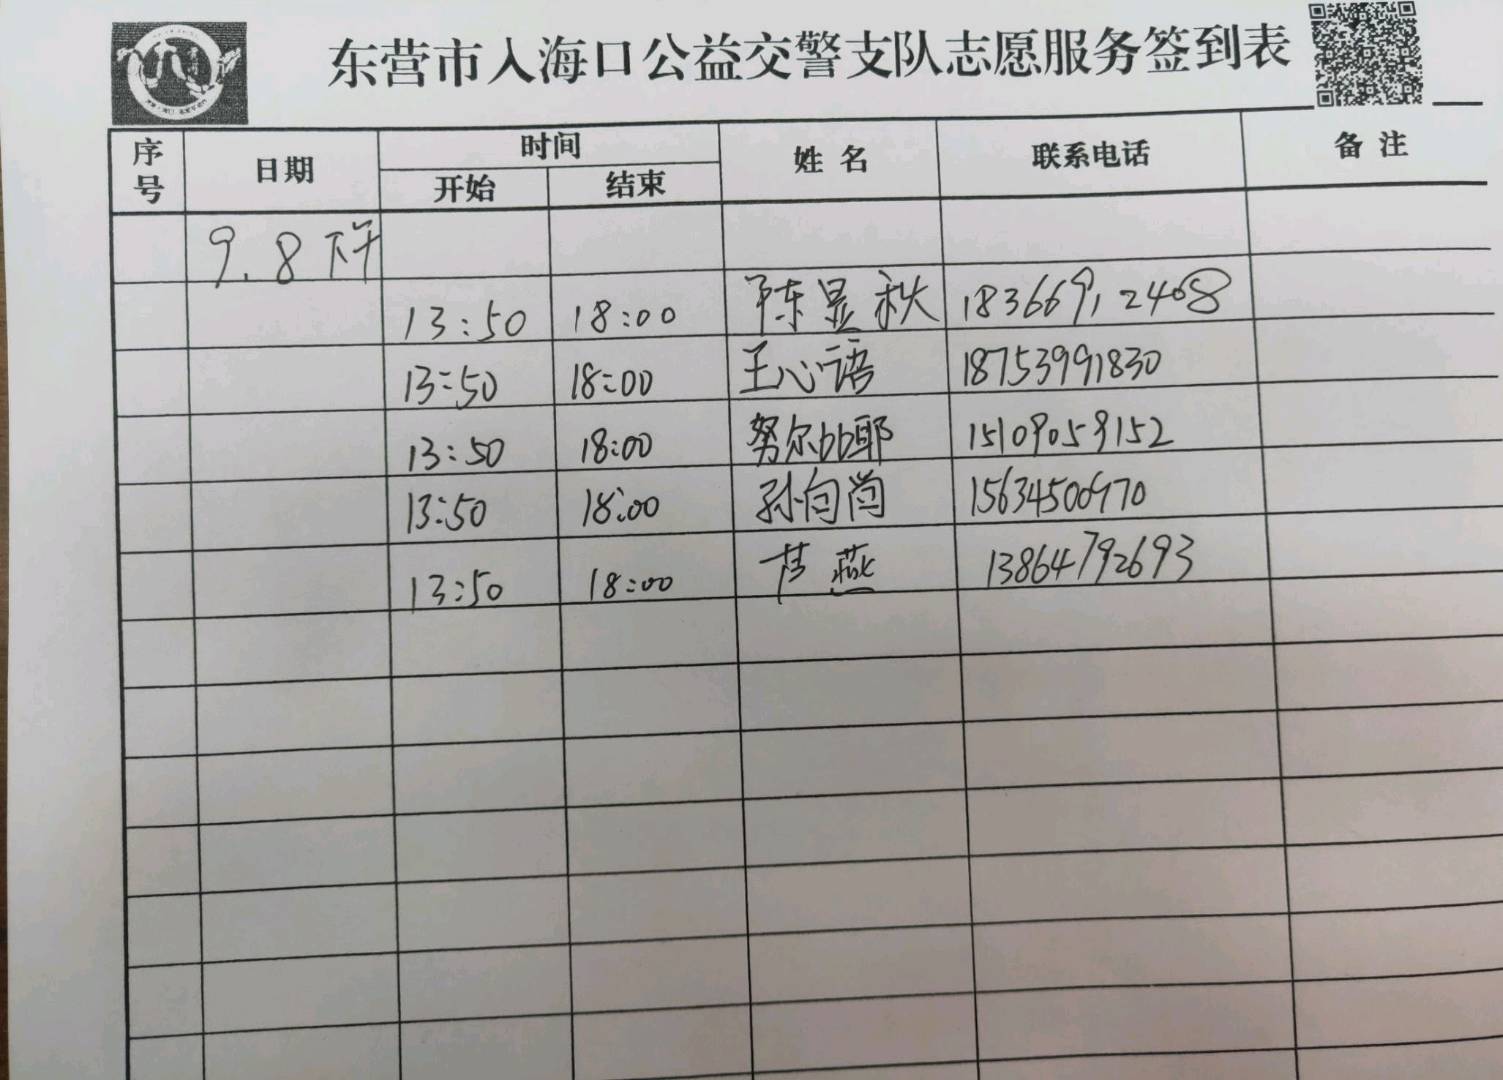 东营市入海口公益交警支队志愿服务签到表
序号 日期 时间 姓名 联系电话 备注
开始 结束
9.8 下午
13:50 18:00 陈显秋 18366912408
13:50 18:00 王心语 18753991830
13:50 18:00 努尔比耶 15109059152
13:50 18:00 孙向尚
13:50 18:00 芦燕 13864792693